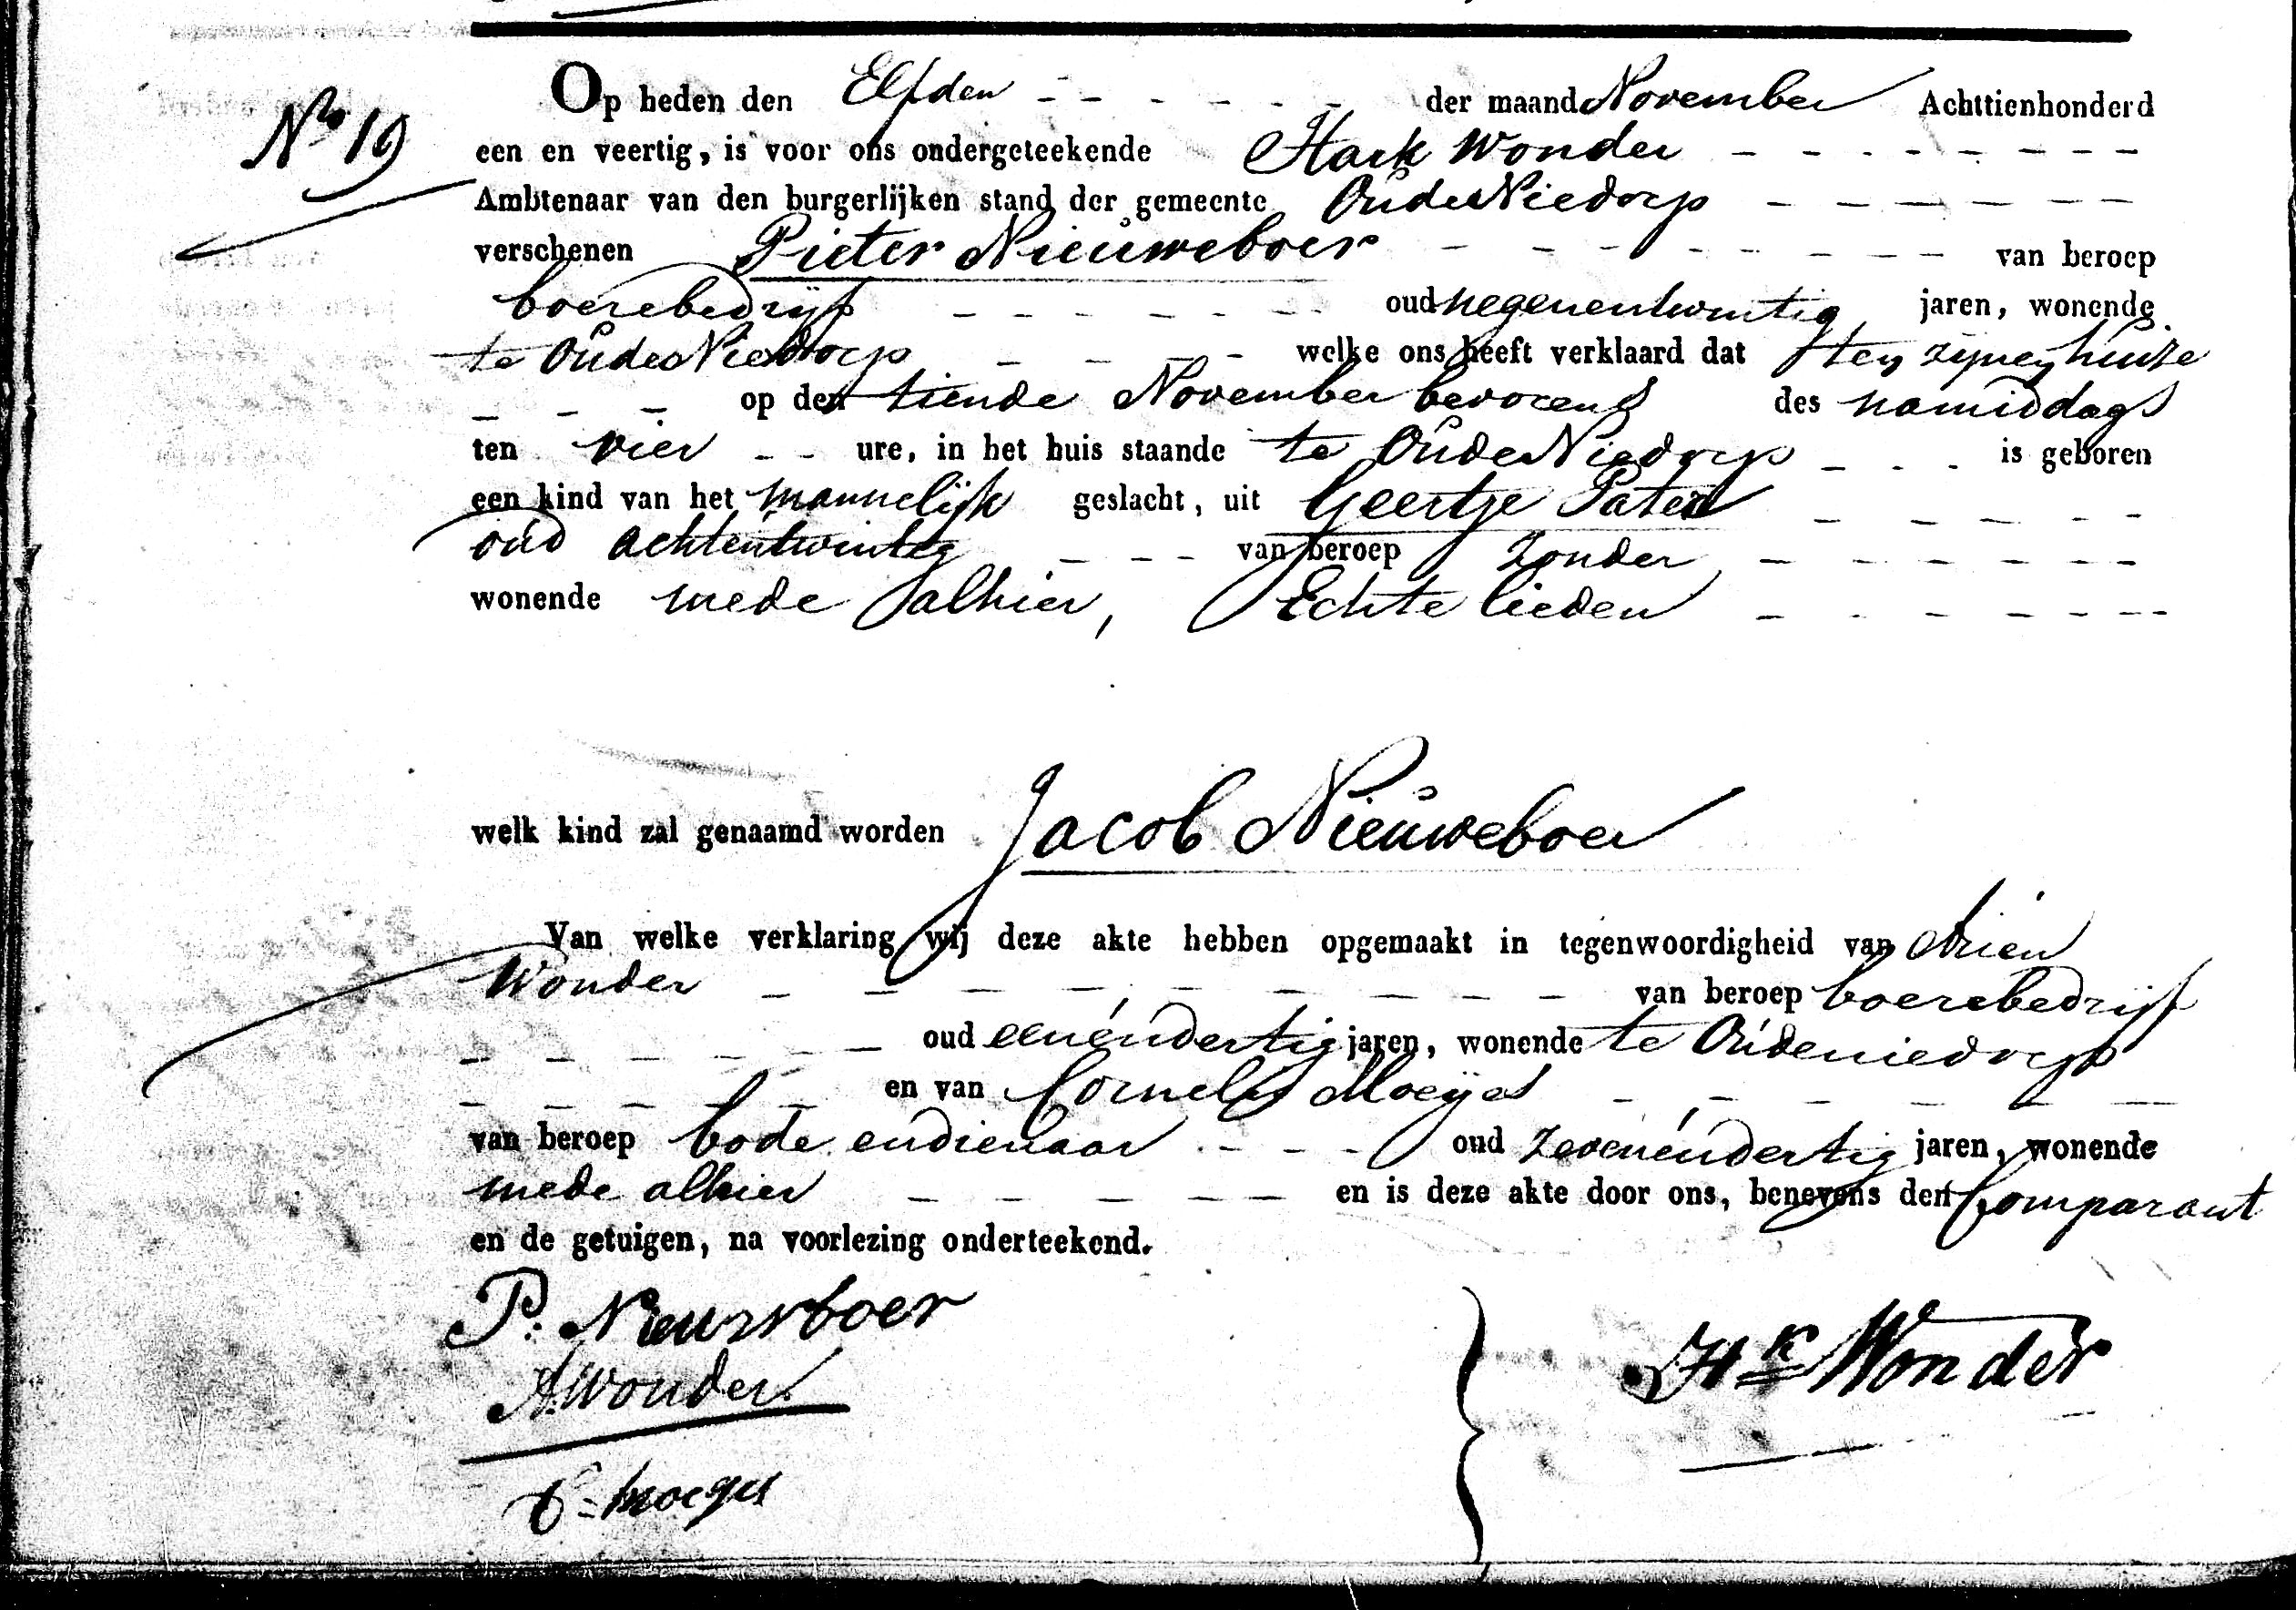 Op heden den Elfden - - - - - - der maand November Achttienhonderd
No 19
een en veertig, is voor ons ondergeteekende Hark Wonder - - - - - - - -
Ambtenaar van den burgerlijken stand der gemeente OudeNiedorp - - - - - -
verschenen Pieter Nieuweboer - - - - - - - van beroep
boerebedrijf - - - - - - oud negenentwintig jaren, wonende
te OudeNiedorp - - - - welke ons heeft verklaard dat ten zijnen huize
- - - op den tiende November bevorens des namiddags
ten vier - - ure, in het huis staande te OudeNiedorp - - - is geboren
een kind van het mannelijk geslacht, uit Geertje Pater - - - - -
oud achtentwintig - - - van beroep zonder - - - - - -
wonende mede alhier, Echte lieden - - - - - -
welk kind zal genaamd worden Jacob Nieuweboer
Van welke verklaring wij deze akte hebben opgemaakt in tegenwoordigheid van Arien
Wonder - - - - - - - - - van beroep boerebedrijf
- - - - - - oud eenendertig jaren, wonende te Oudeniedorp
- - - - - en van Cornelis Moeijes - - - - - -
van beroep bode endienaar - - - oud zevenendertig jaren, wonende
mede alhier - - - - - en is deze akte door ons, benevens den Comparant
en de getuigen, na voorlezing onderteekend.
P: Nieuwboer
Hk Wonder
A. Wonder
C = moeges